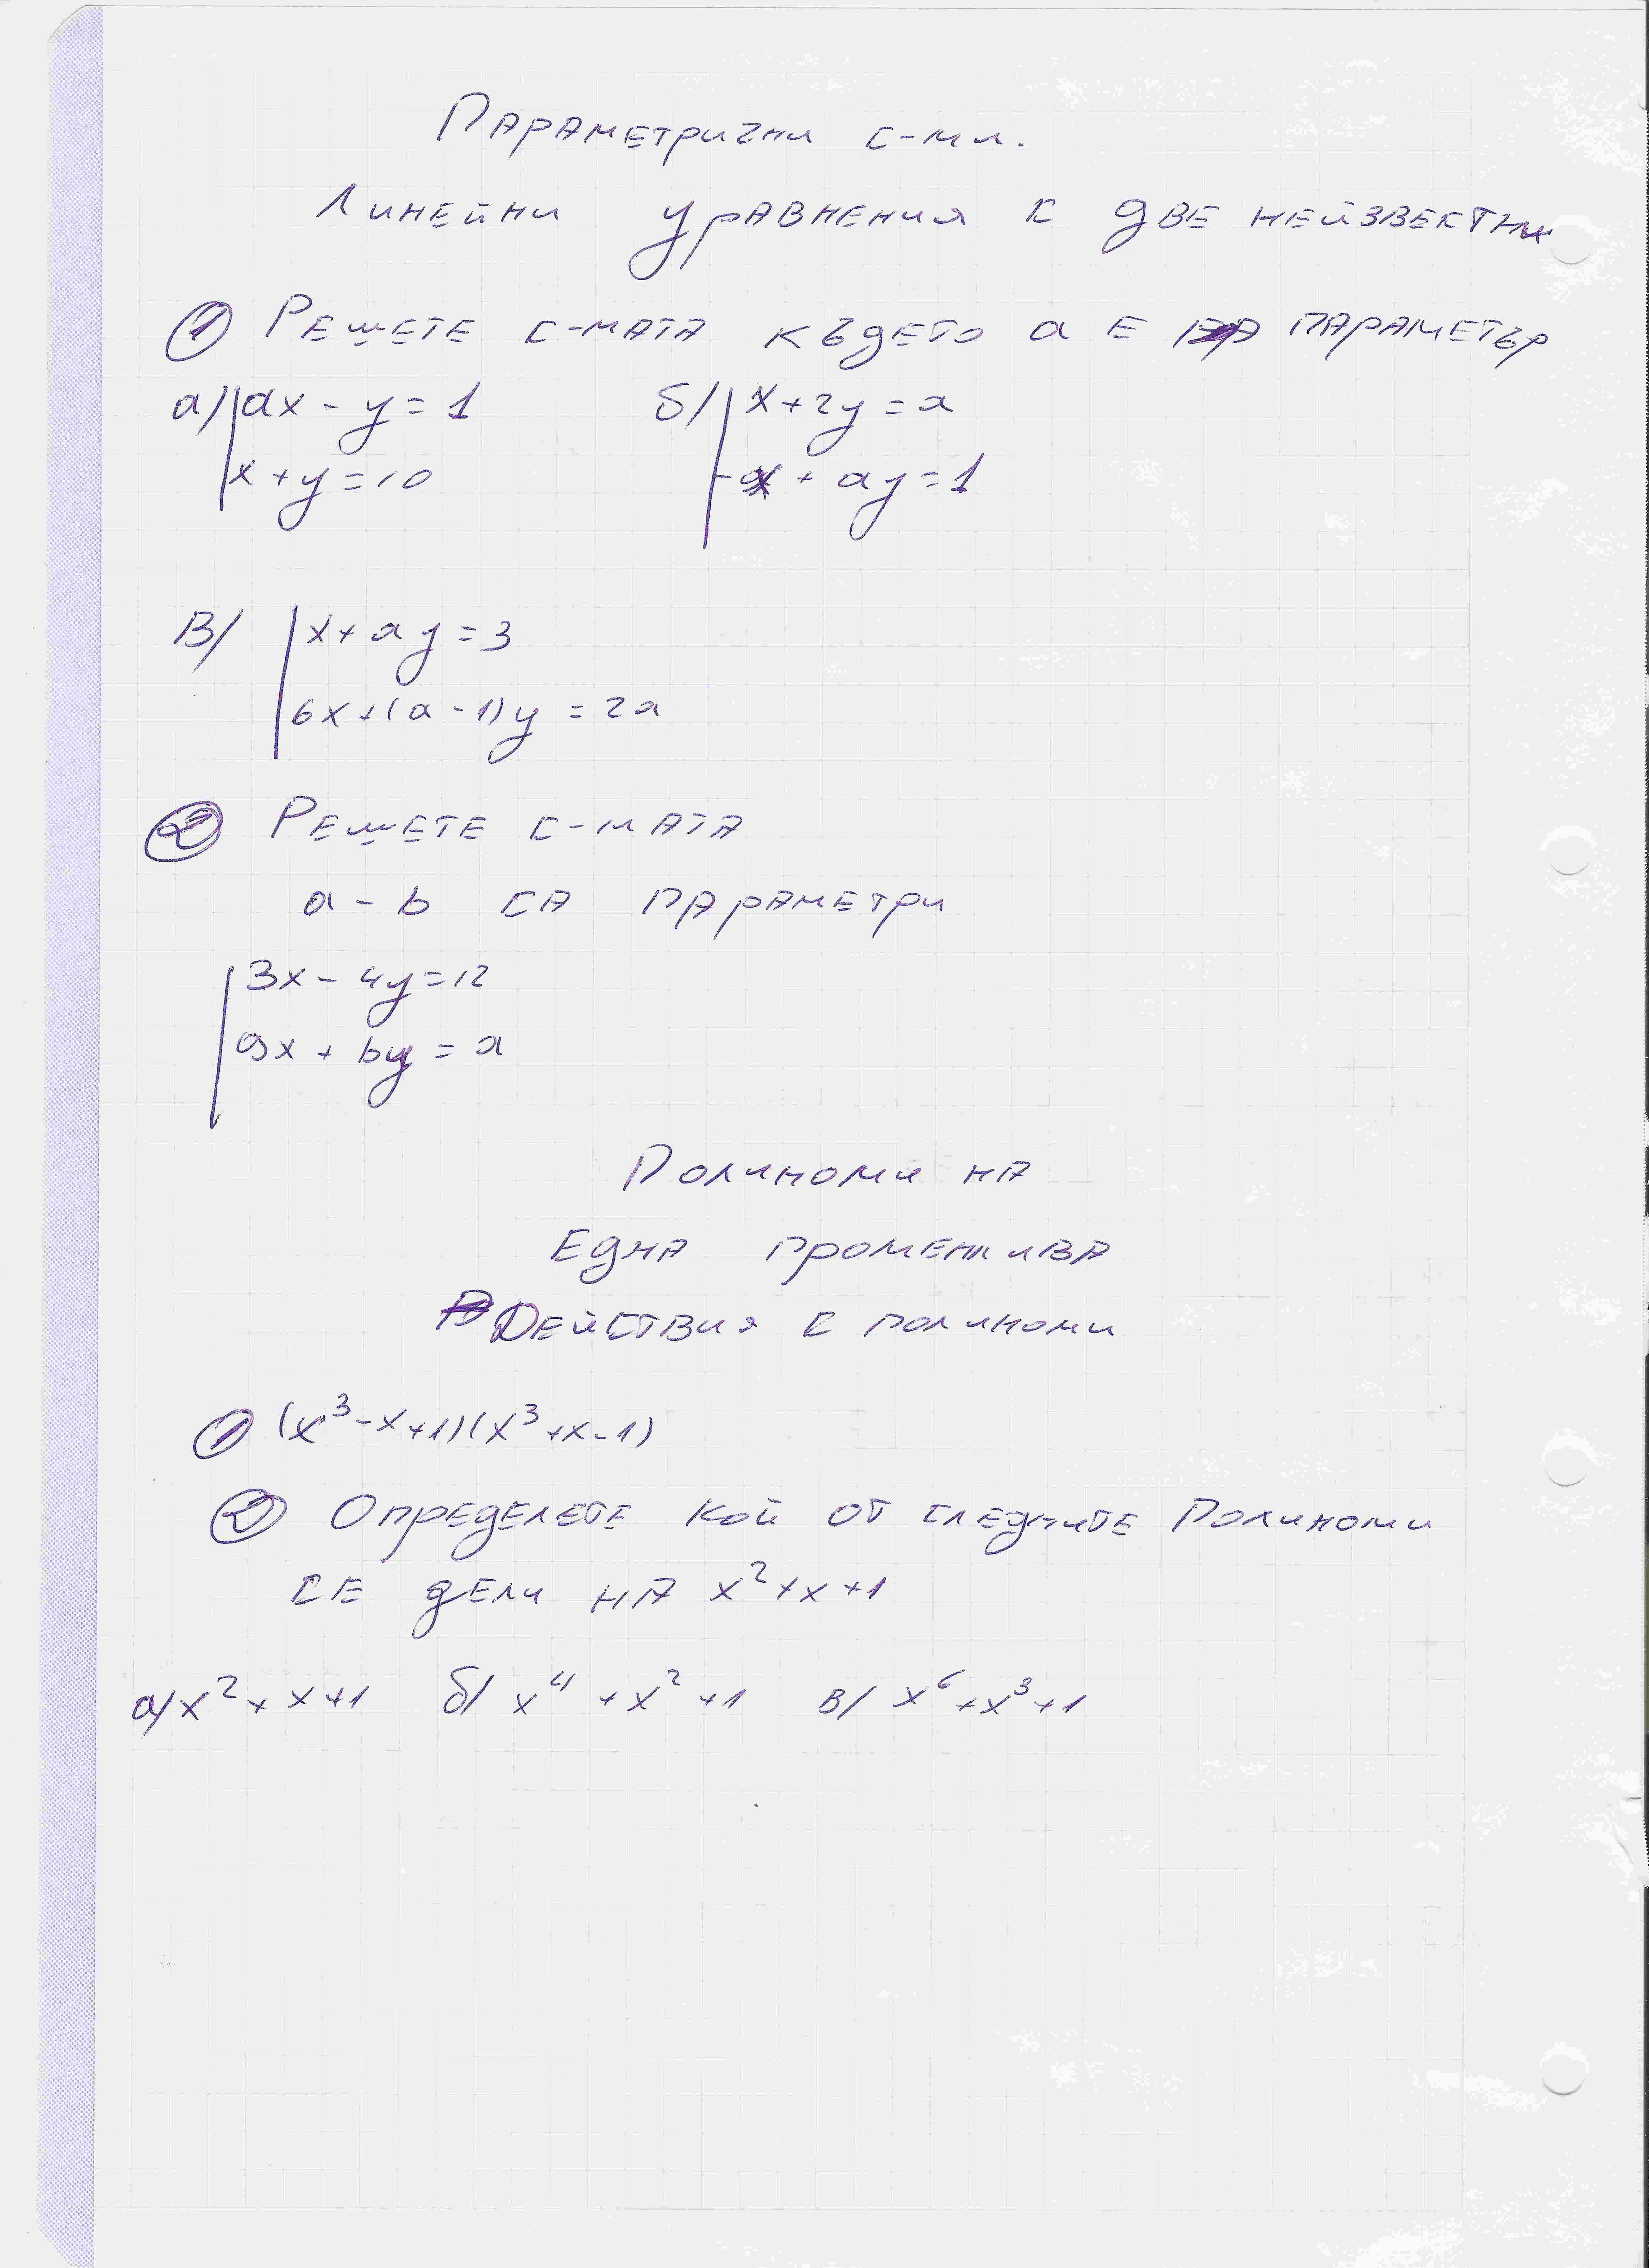 Параметрични с-ми.
Линейни уравнения с две нейзвестни
① Решете с-мата където a е параметър
а/ |ax - y = 1 б/ |x + 2y = a
|x + y = 10 |-x + ay = 1
В/ |x + ay = 3
|6x + (a - 1)y = 2a
② Решете с-мата
a - b са параметри
|3x - 4y = 12
|9x + by = a
Полиноми на
Една променлива
Действия с полиноми
① (x³ - x + 1)(x³ + x - 1)
② Определете кой от следните Полиноми
се дели на x² + x + 1
а/ x² + x + 1 б/ x⁴ + x² + 1 в/ x⁶ + x³ + 1